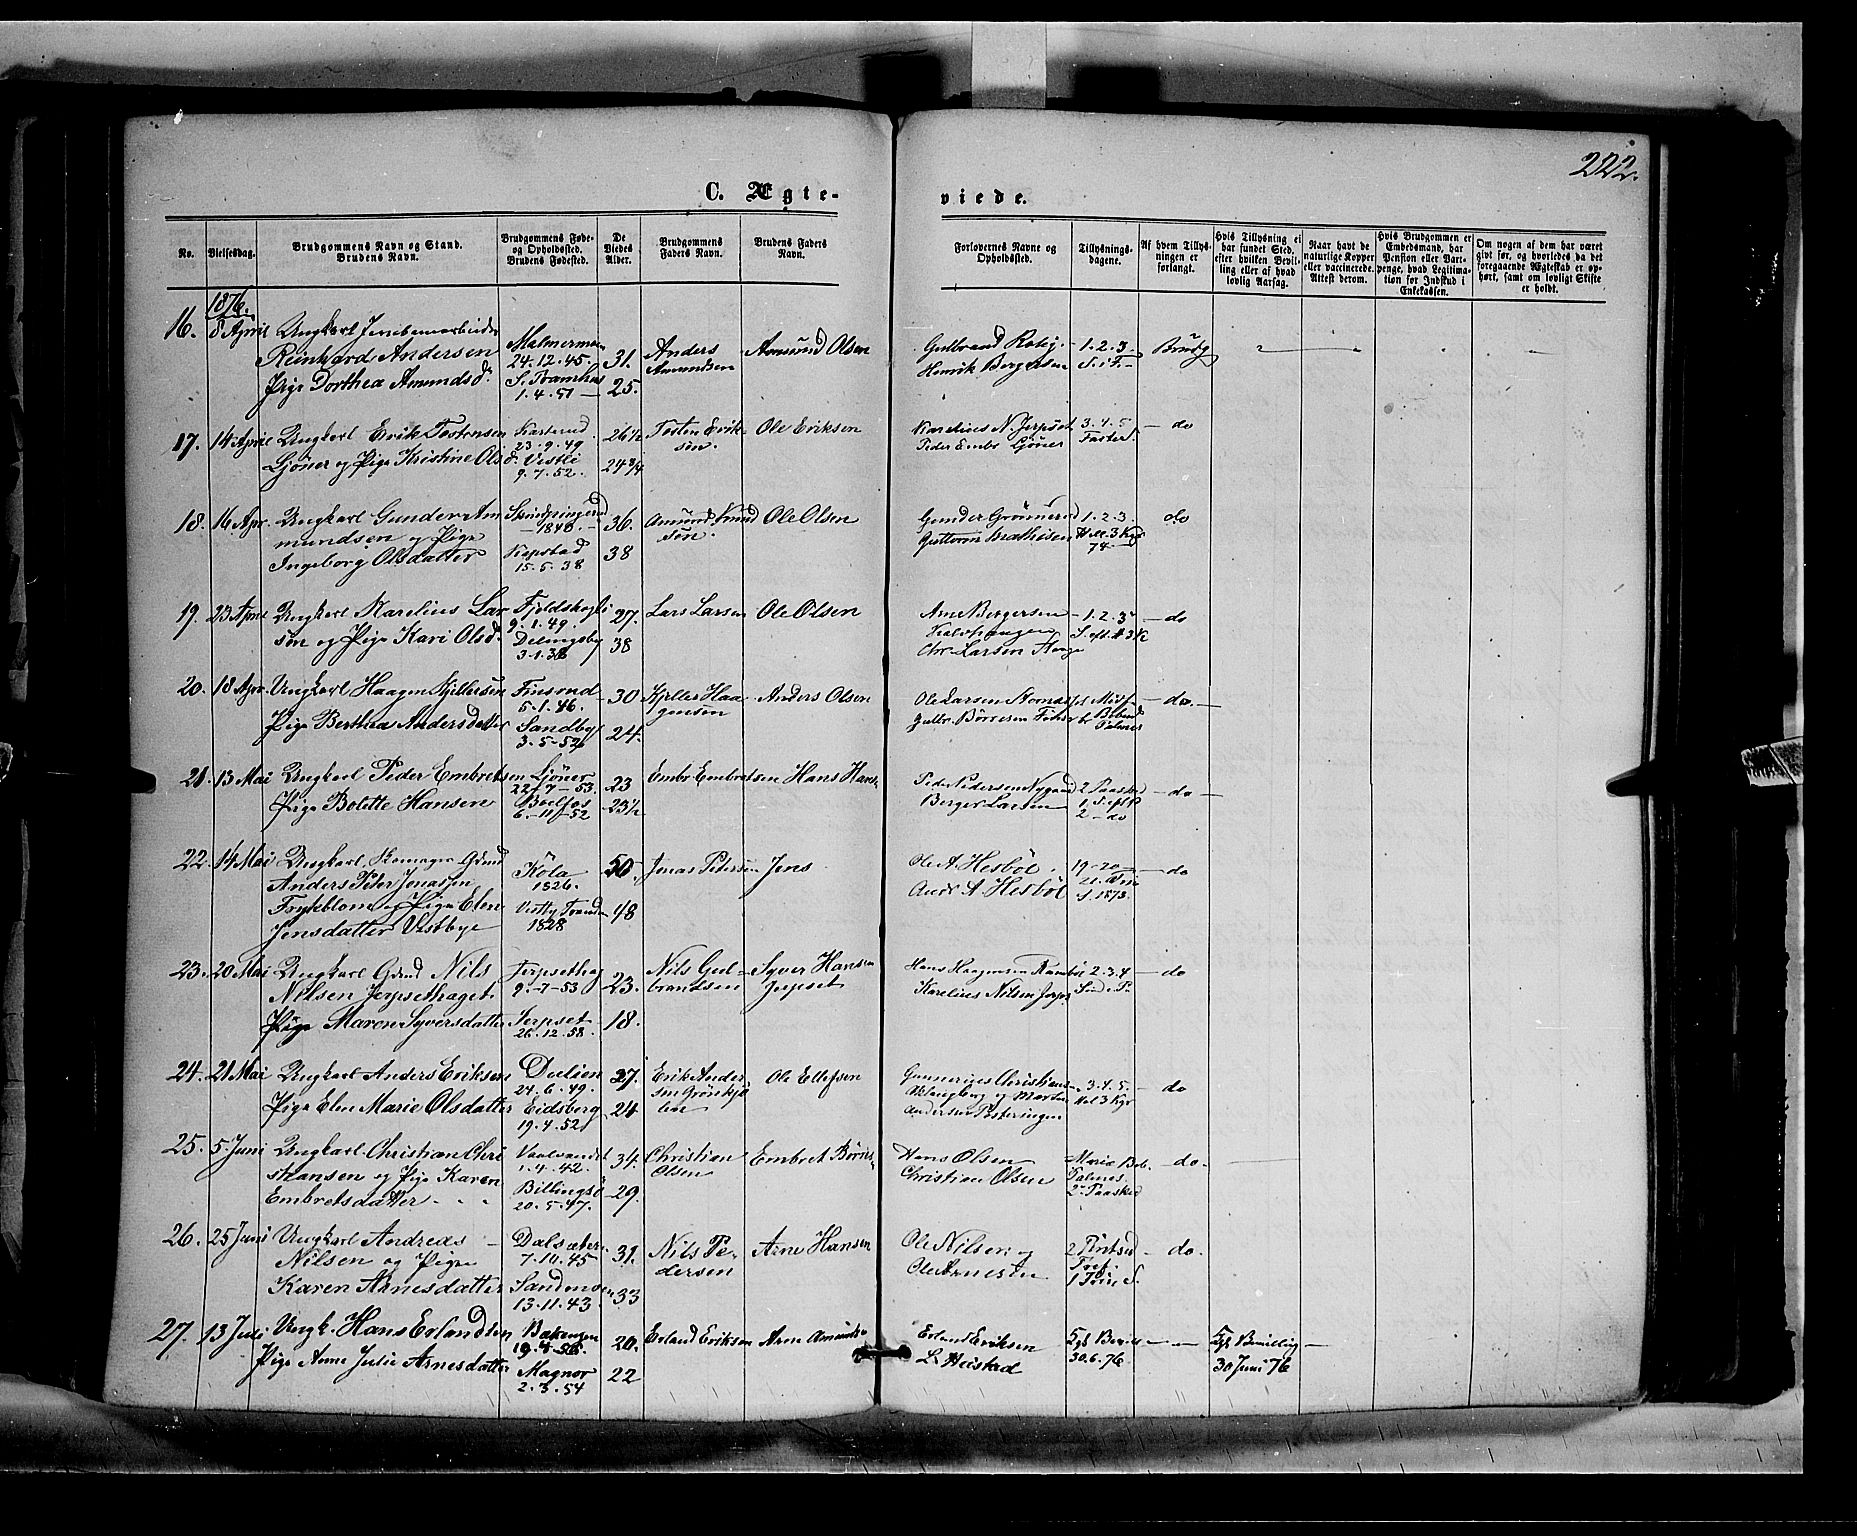 222.
C. Ægte-
viede.
No. Vielsesdag. Brudgommens Navn og Stand. Brudens Navn. Brudgommens Føde- og Opholdssted. Brudens Fødested. De Viedes Alder. Brudgommens Faders Navn. Brudens Faders Navn. Forlovernes Navne og Opholdssted. Tillysnings-dagene. Af hvem Tillys-ningen er forlangt. Hvis Tillysning ei har fundet Sted, efter hvilken Bevil-ling eller af hvad lovlig Aarsag. Naar havt de naturlige Kopper eller vaccinerede. Attest derom. Hvis Brudgommen er Embedsmand, har Pension eller Vart-penge, hvad Legitima-tion for Indskud i Enkekassen. Om nogen af dem har været gift før, og hvorledes da det foregaaende Ægteskab er op-hørt, samt om lovligt Skifte er holdt.
1876.
16. 8 April Ungkarl Jernbanearbeider
Reinhard Andersen 24.12.45. 31. Anders Amundsen Amund Olsen Henrik Bergersen 1.2.3 Brudg
Pige Dorthea Amundsd. 1.4.51 25.
17. 14 April Ungkarl Erik Tostensen 23.9.49 26½ Tosten Erik-sen. Ole Eriksen Karelius N. Jerpset 3.4.5 do
Ljøner og Pige Kristine Olsd. Vestli 9.7.52. 24¾ Peder Embr Ljøner Faster
18. 16 Apr. Ungkarl Gunder Am 1840. 36. Amund Knud sen. Ole Olsen Gunder Grønnerud 1.2.3. do
mundsen og Pige Guttorm Mathisen
Ingeborg Olsdatter Kopstad 15.5.38 38
19. 23 April Ungkarl Marelius Lar 9.1.49. 27. Lars Larsen Ole Olsen Arne Bergersen 1.2.3 do
sen og Pige Kari Olsd. 3.1.38 38 Chr. Larsen
20. 18 Apr. Ungkarl Haagen Kjillersen 5.1.46. 30 Kjeller Haa gensen Anders Olsen Ole Larsen do
Pige Berthea Andersdatter Sandby 3.5.52 24. Gulbr. Børresen
21. 13 Mai Ungkarl Peder Embretsen Ljøner 22/7-53. 23 Embr Embretsen Hans Hans. Peder Pedersen Nygaard 2 Paaske do
Pige Bolette Hansen 6.-11-52 23½ Berger Larsen 2 - do
22. 14 Mai Ungkarl, Skomager Gdmd Kola 1826. 50 Jonas Petersen Jens Ole A. Hesbøl 19-20 do
Anders Peter Jonassen Andr. A. Hesbøl 1873.
Frykblom og Pige Elen 1828 48
Jensdatter Vestbye
23. 20 Mai Ungkarl Gdmd Nils Jerpsethag 9.-7-53 23. Nils Gul-brandsen Syver Hansen Jerpset Hans Haagensen 2.3.4 do
Nilsen Jerpsethaget Karelius Nilsen Jerps.
Pige Maren Syversdatter Jerpset 26.12.58. 18.
24. 21 Mai Ungkarl Anders Eriksen Dulien 24.6.49. 27. Erik Ander sen Ole Ellefsen 3.4.5. do
Pige Elen Marie Olsdatter Eidsberg 19.4.52 24
25. 5 Juni Ungkarl Christian Chri 1.4.42. 34. Christian Olsen Embret Børres. Hans Olsen Mariæ Beb. do.
stiansen og Pige Karen Christian Olsen Palmes.
Embretsdatter Billingsø 20.5.47. 29. 2 Paasked
26. 25 Juni Ungkarl Andreas Dalsæter 7.10.45 31. Nils Pe-dersen Arne Hansen Ole Nilsen og 2 Pintsd do.
Nilsen og Pige Ole Arnesen
Karen Arnesdatter Sandmoen 13.11.43. 33
27. 13 Juli Ungk. Hans Erlandsen 20. Erland Eriksen Arne Amunds. Erland Eriksen Kgl Bevill Kgl Bevilling
Pige Anne Julie Arnesdatter Magnor 2.3.54 22 L. Heistad 30.6.76 30 Juni 76